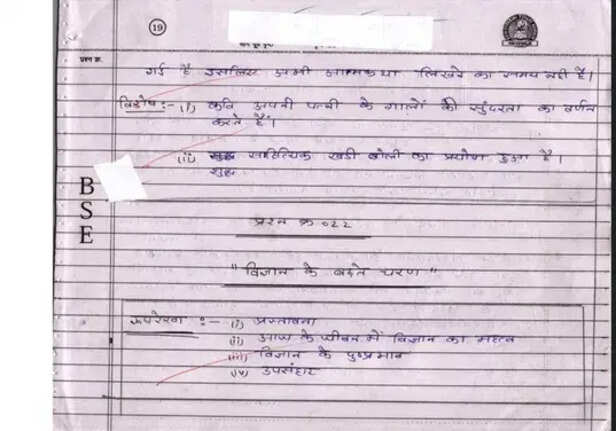 19
प्रश्न क्र.
गई है इसलिए अभी आत्मकथा लिखने का समय नही है।
विशेष :- (i) कवि अपनी पत्नी के गालों की सुंदरता का वर्णन
करते हैं।
(ii) शुद्ध साहित्यिक खड़ी बोली का प्रयोग हुआ है।
शुद्ध
B
S
E
प्रश्न क्र० 22
"विज्ञान के बढ़ते चरण"
रूपरेखा :- (i) प्रस्तावना
(ii) आज के जीवन में विज्ञान का महत्व
(iii) विज्ञान के दुष्प्रभाव
(iv) उपसंहार